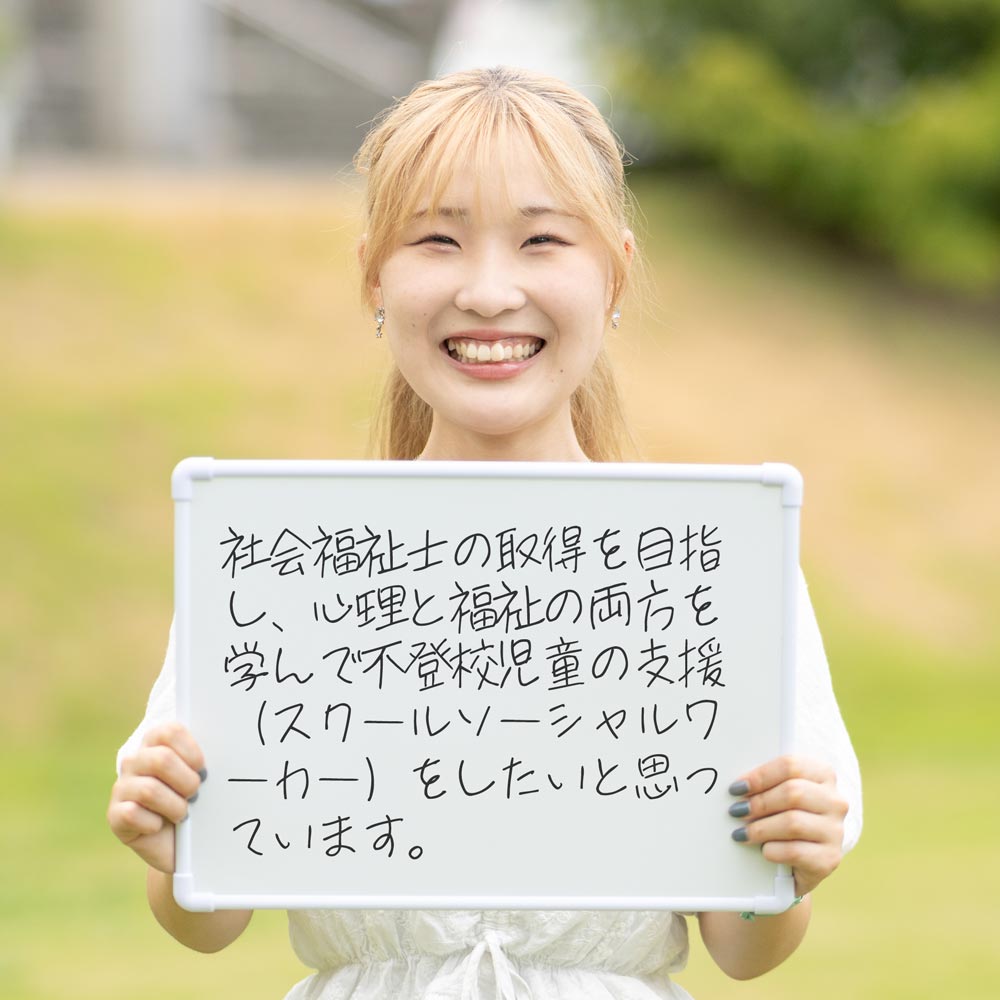 社会福祉士の取得を目指
し、心理と福祉の両方を
学んで不登校児童の支援
（スクールソーシャルワ
ーカー）をしたいと思っ
ています。